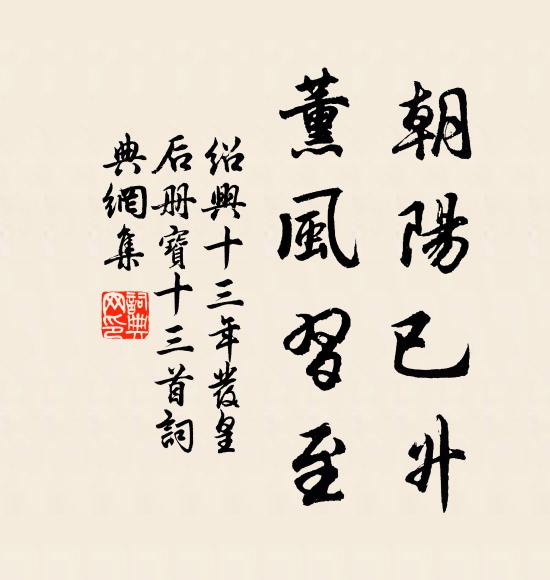 朝陽已升
薰風習至
紹興十三年發皇
后册寶十三首詞
典網集
詞典网印